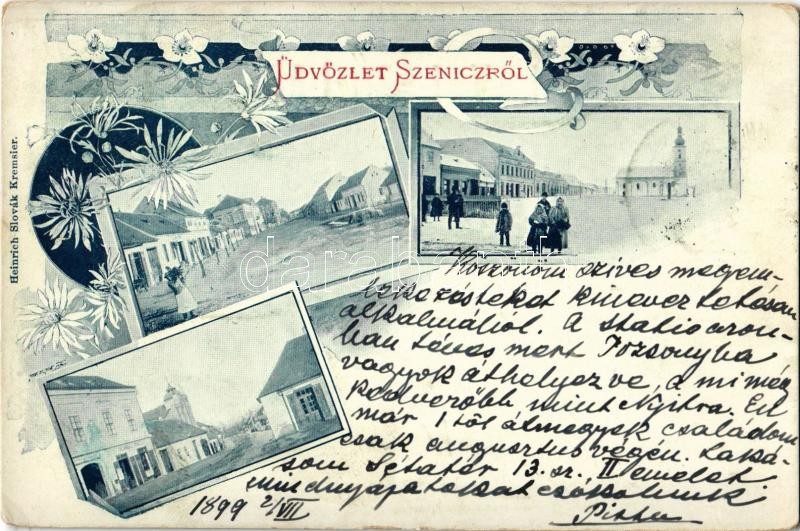 ÜDVÖZLET SZENICZRŐL
Heinrich Slovák Kremsier.
darabanth
Köszönöm szives megem-
lékezésteket kineveztetésem
alkalmából. A statio azon-
ban téves mert Pozsonyba
vagyok áthelyezve, a mi még
kedvezőbb mint Nyitra. Én
már 1 től átmegyek családom
csak augustus végén. Laká-
som Sétatér 13. sz. II emelet
mindnyájatokat csókolunk
Pista
1899 2/VII